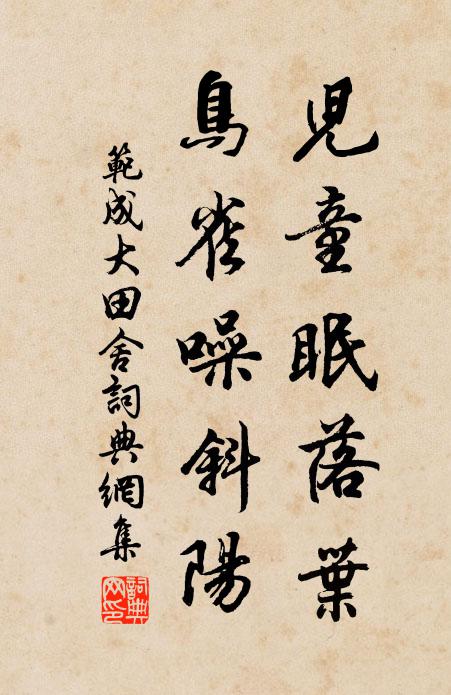 児童眠落葉
鳥雀噪斜陽
範成大田舍詞典網集
詞典網印